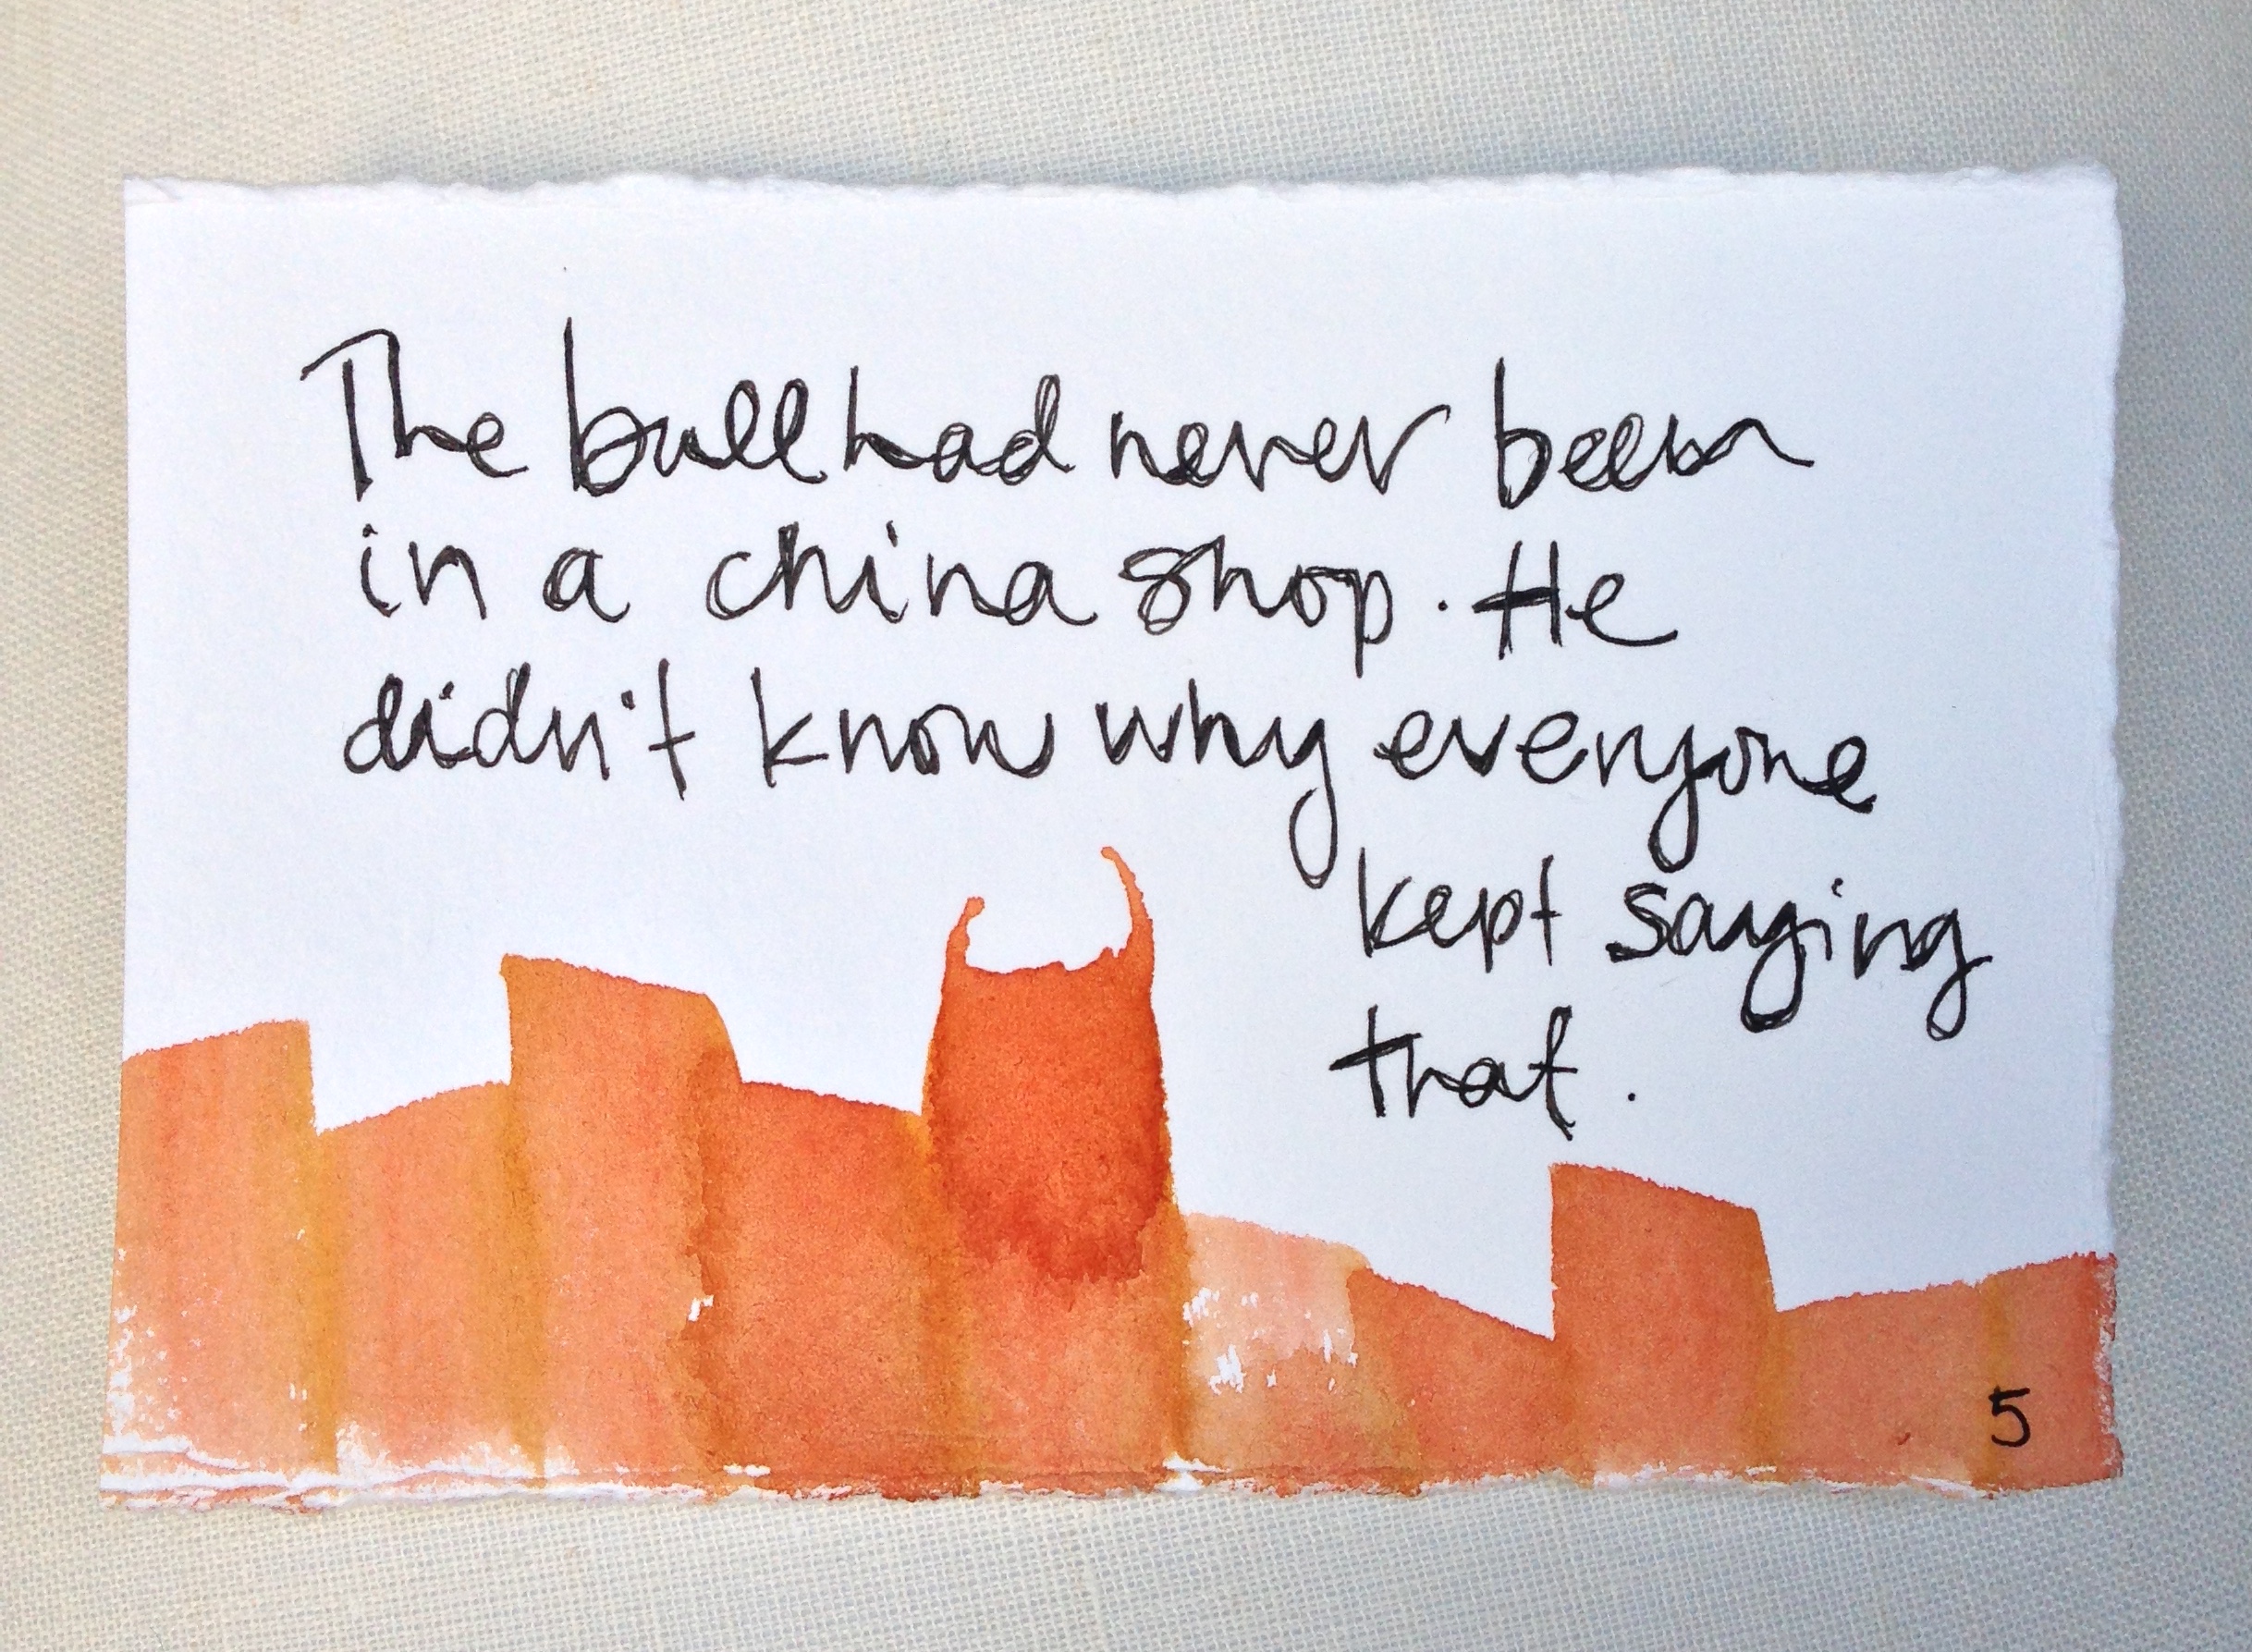 The bull had never been
in a china shop. He
didn't know why everyone
kept saying
that.
5